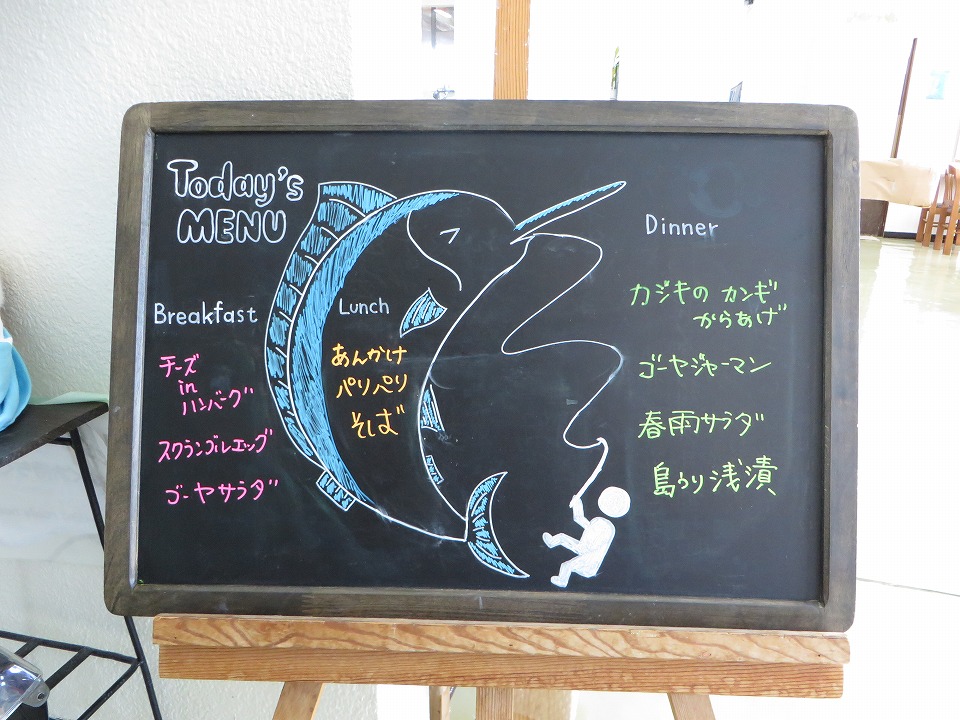 Today's
MENU
Breakfast
チーズ
in
ハンバーグ
スクランブルエッグ
ゴーヤサラダ
Lunch
あんかけ
パリパリ
そば
Dinner
カジキの カンギ
からあげ
ゴーヤジャーマン
春雨サラダ
島うり浅漬